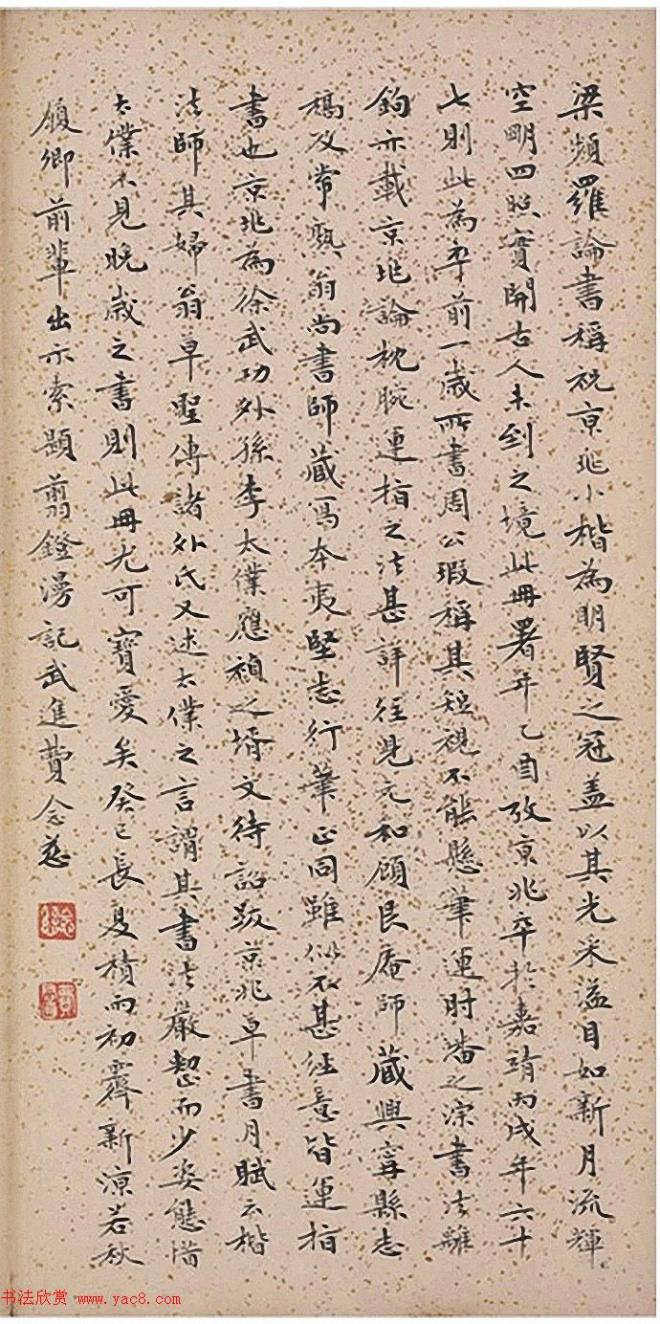 梁頻羅論書稱祝京兆小楷為明賢之冠盖以其光采溢目如新月流輝
空明四照實開古人未到之境此冊署年乙酉攷京兆卒於嘉靖丙戌年六十
七則此為卒前一歲所書周公瑕稱其短視不能懸筆運肘潘之淙書法離
鉤亦載京兆論枕腕運指之法甚詳往見元和顧艮庵師藏興寧縣志
稿及常熟翁尚書師藏寫本夷堅志行筆正同雖似不甚經意皆運指
書也京兆為徐武功外孫李太僕應禎之壻文待詔跋京兆草書月賦云楷
法師其婦翁草聖傳諸外氏又述太僕之言謂其書法嚴整而少姿態惜
太僕不見晚歲之書則此冊尤可寶愛矣癸巳長夏積雨初霽新涼若秋
頎卿前輩出示索題翦鐙漫記武進費念慈
书法欣赏 www.yac8.com